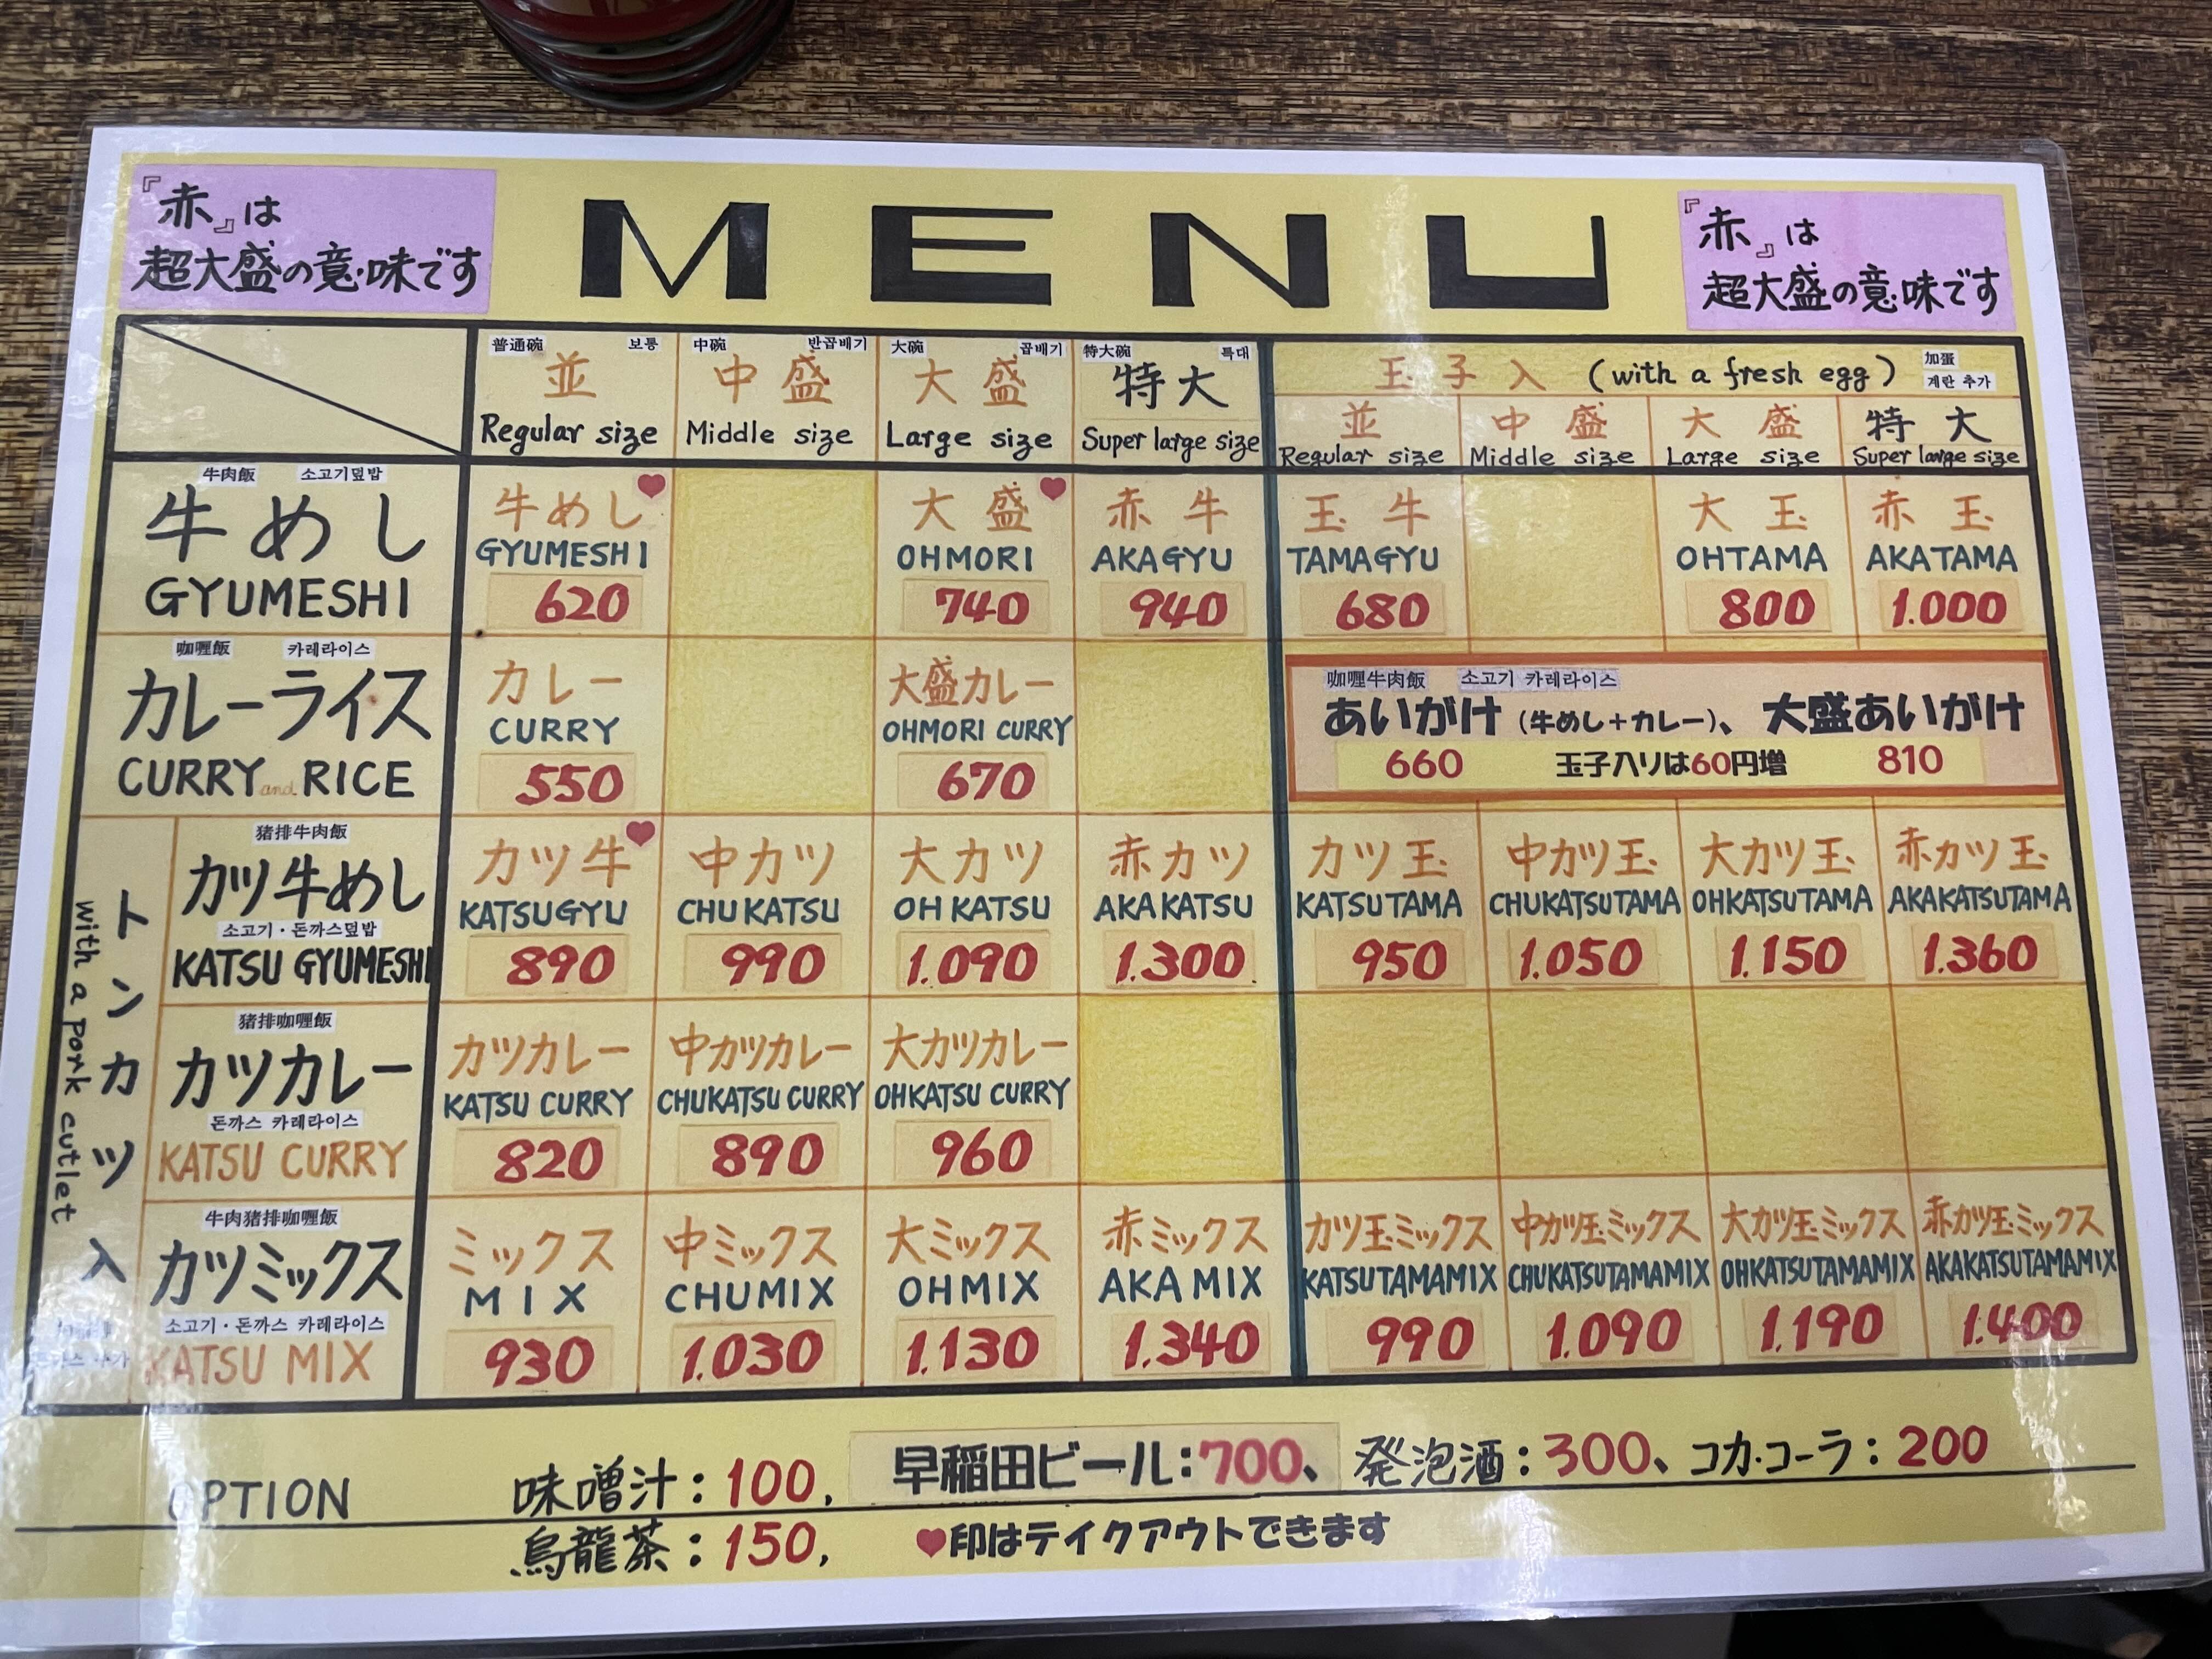 『赤』は
超大盛の意味です
MENU
『赤』は
超大盛の意味です
普通碗 보통
並
Regular size
中碗 반곱배기
中盛
Middle size
大碗 곱배기
大盛
Large size
特大碗 특대
特大
Super large size
玉子入 (with a fresh egg) 加蛋
계란 추가
並
Regular size
中盛
Middle size
大盛
Large size
特大
Super large size
牛肉飯 소고기덮밥
牛めし
GYUMESHI
牛めし♥
GYUMESHI
620
大盛♥
OHMORI
740
赤牛
AKAGYU
940
玉牛
TAMAGYU
680
大玉
OHTAMA
800
赤玉
AKATAMA
1.000
咖喱飯 카레라이스
カレーライス
CURRY and RICE
カレー
CURRY
550
大盛カレー
OHMORI CURRY
670
咖喱牛肉飯 소고기 카레라이스
あいがけ(牛めし+カレー)、大盛あいがけ
660 玉子入リは60円増 810
トンカツ入
with a pork cutlet
猪排牛肉飯
カツ牛めし
소고기・돈까스덮밥
KATSU GYUMESHI
カツ牛♥
KATSUGYU
890
中カツ
CHUKATSU
990
大カツ
OHKATSU
1.090
赤カツ
AKAKATSU
1.300
カツ玉
KATSUTAMA
950
中カツ玉
CHUKATSUTAMA
1.050
大カツ玉
OHKATSUTAMA
1.150
赤カツ玉
AKAKATSUTAMA
1.360
猪排咖喱飯
カツカレー
돈까스 카레라이스
KATSU CURRY
カツカレー
KATSU CURRY
820
中カツカレー
CHUKATSU CURRY
890
大カツカレー
OHKATSU CURRY
960
牛肉猪排咖喱飯
カツミックス
소고기・돈까스 카레라이스
KATSU MIX
ミックス
MIX
930
中ミックス
CHUMIX
1.030
大ミックス
OHMIX
1.130
赤ミックス
AKAMIX
1.340
カツ玉ミックス
KATSUTAMAMIX
990
中カツ玉ミックス
CHUKATSUTAMAMIX
1.090
大カツ玉ミックス
OHKATSUTAMAMIX
1.190
赤カツ玉ミックス
AKAKATSUTAMAMIX
1.400
OPTION 味噌汁:100, 早稲田ビール:700、発泡酒:300、コカ・コーラ:200
烏龍茶:150, ♥印はテイクアウトできます